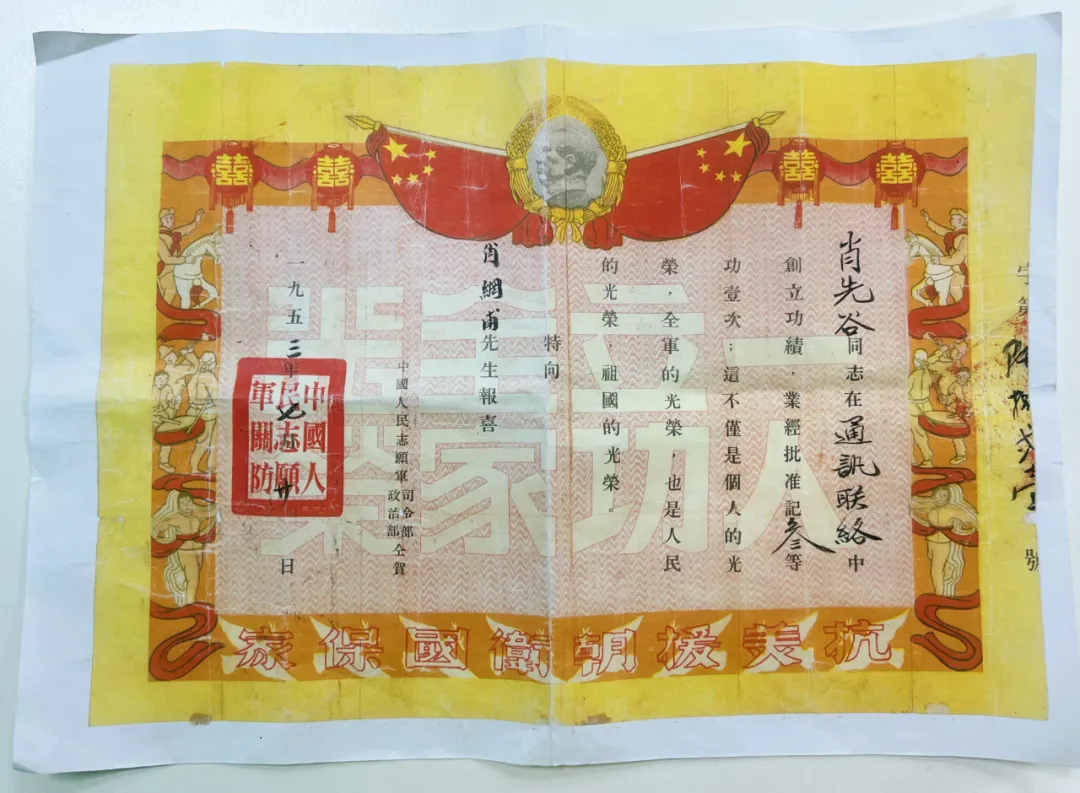 囍 囍 囍 囍
肖先谷同志在通訊联絡中
創立功績，業經批准記叁等
功壹次；這不僅是個人的光
榮，全軍的光榮，也是人民
的光榮，祖國的光榮。
特向
肖網甫先生報喜
中國人民志願軍
司令部
政治部
仝賀
一九五三年 日
中國人民志願軍關防
一人立功
全家
抗美援朝衛國保家
字第
號